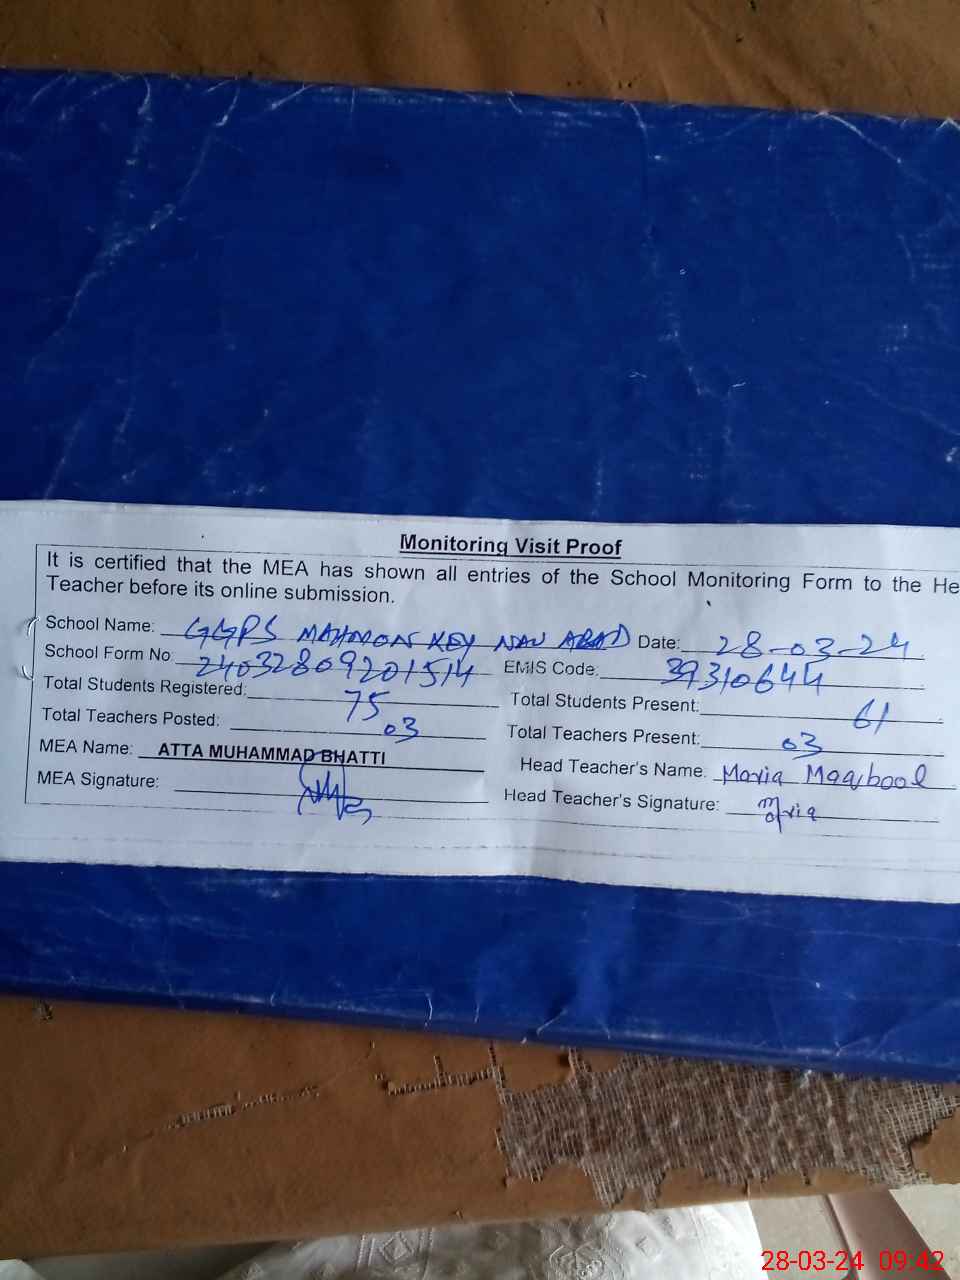 Monitoring Visit Proof
It is certified that the MEA has shown all entries of the School Monitoring Form to the He
Teacher before its online submission.
School Name: GGPS MAHMON KEY NAU ABAD Date: 28-03-24
School Form No 24032809201514 EMIS Code: 39310644
Total Students Registered: 75 Total Students Present: 61
Total Teachers Posted: 03 Total Teachers Present: 03
MEA Name: ATTA MUHAMMAD BHATTI Head Teacher's Name. Maria Maqbool
MEA Signature: Head Teacher's Signature: Maria
28-03-24 09:42